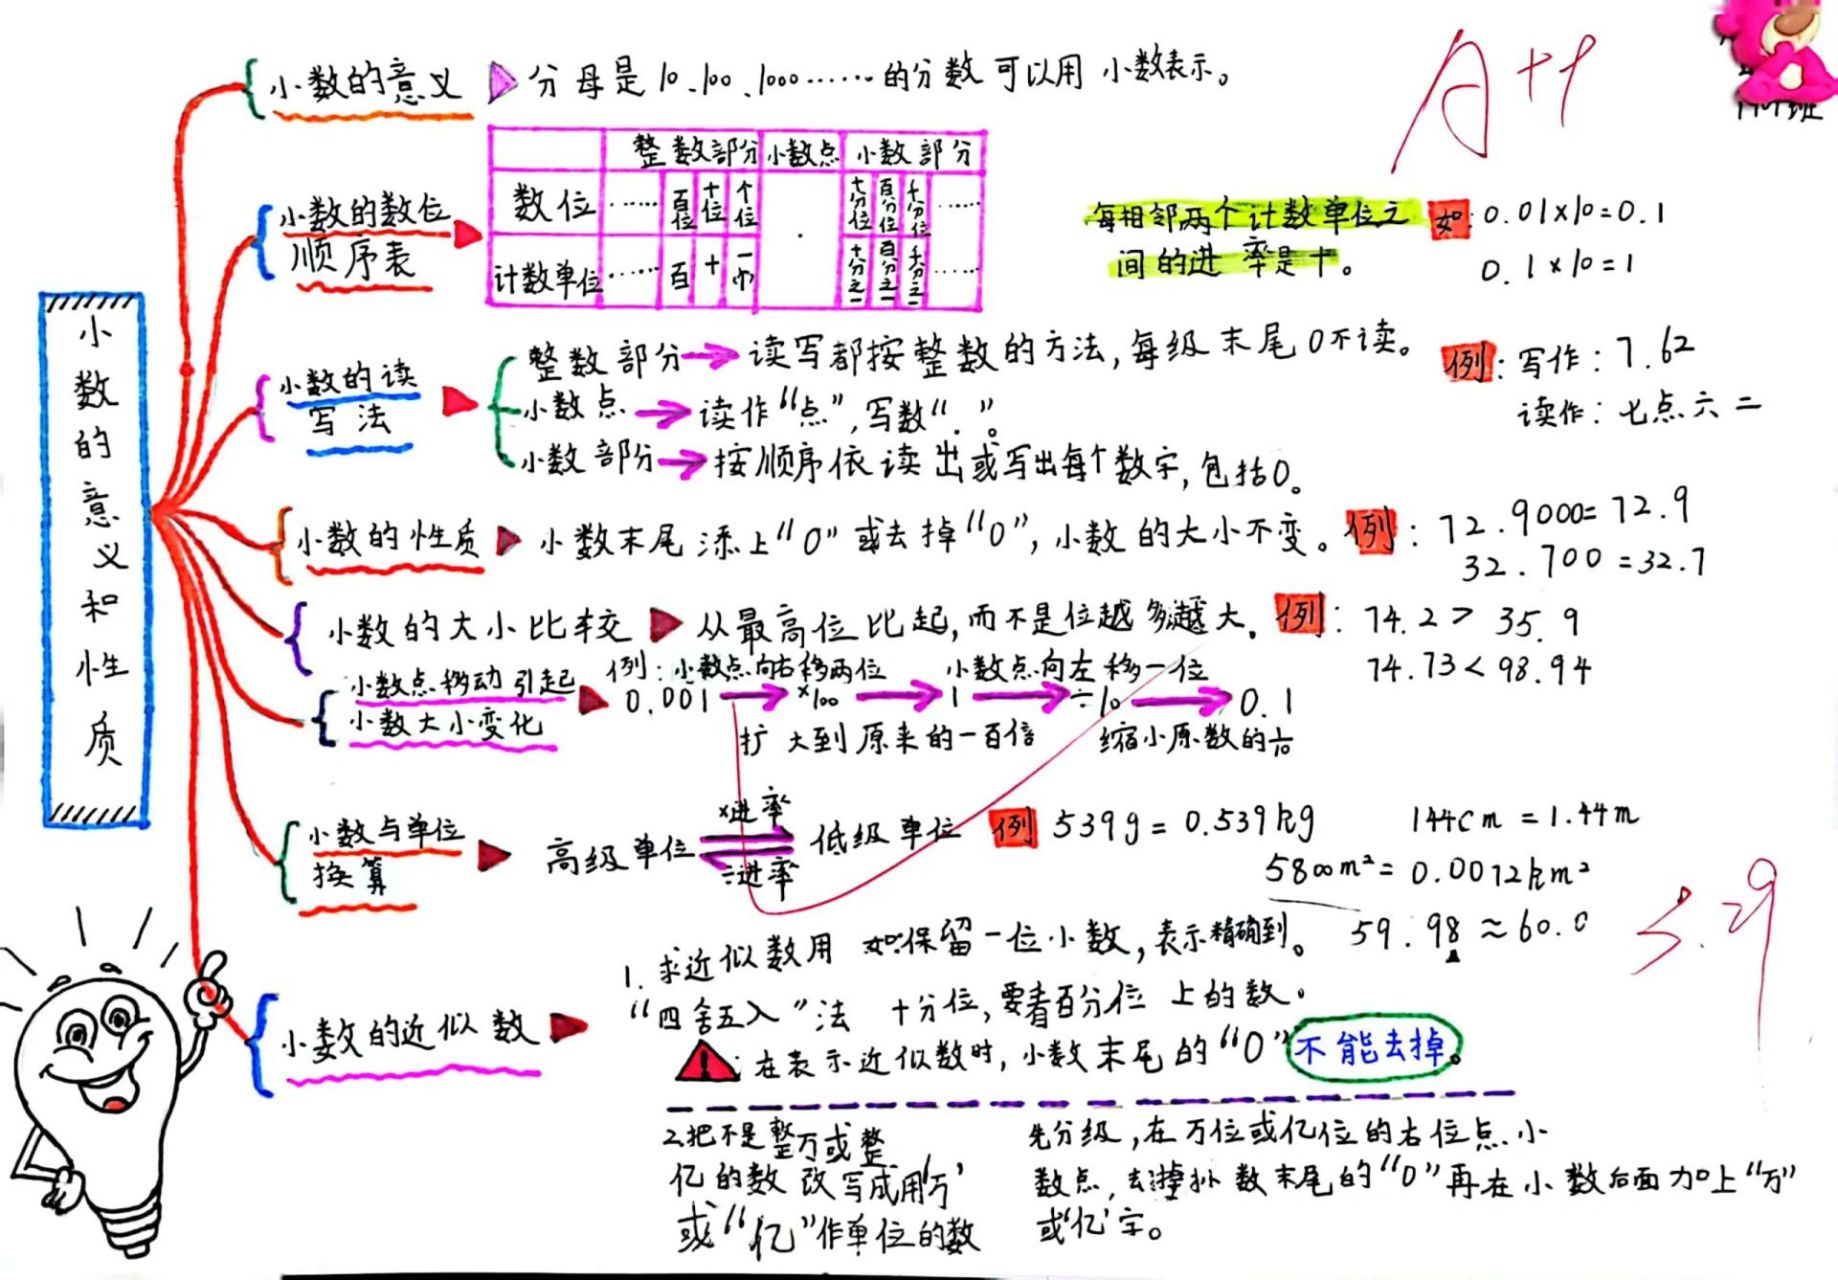 A++
小数的意义和性质
小数的意义 分母是10、100、1000……的分数可以用小数表示。
小数的数位
顺序表
整数部分 小数点 小数部分
数位 …… 百位 十位 个位 . 十分位 百分位 千分位 ……
计数单位 …… 百 十 一个 十分之一 百分之一 千分之一 ……
每相邻两个计数单位之
间的进率是十。
如: 0.01×10=0.1
0.1×10=1
小数的读
写法
整数部分→读写都按整数的方法,每级末尾0不读。
小数点→读作“点”,写数“.”。
小数部分→按顺序依读出或写出每个数字,包括0。
例:写作:7.62
读作:七点六二
小数的性质 小数末尾添上“0”或去掉“0”,小数的大小不变。
例:72.9000=72.9
32.700=32.7
小数的大小比较 从最高位比起,而不是位越多越大。
例:74.2>35.9
74.73<98.94
小数点移动引起
小数大小变化
例:小数点向右移两位 小数点向左移一位
0.001 → ×100 → 1 → ÷10 → 0.1
扩大到原来的一百倍 缩小原数的1/10
小数与单位
换算
×进率
高级单位 低级单位
÷进率
例 539g=0.539kg 144cm=1.44m
5800m²=0.0072km²
小数的近似数
1.求近似数用 如:保留一位小数,表示精确到。 59.98≈60.0
“四舍五入”法 十分位,要看百分位上的数。
!:在表示近似数时,小数末尾的“0”不能去掉。
2.把不是整万或整
亿的数改写成用‘万’
或“亿”作单位的数
先分级,在万位或亿位的右位点小
数点,去掉小数末尾的“0”再在小数后面加上“万”
或‘亿’字。
5.29